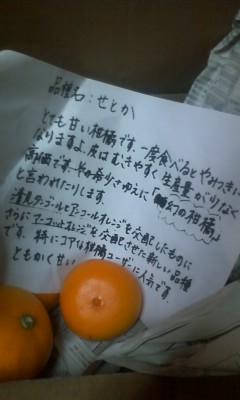 品種名：せとか
とても甘い柑橘です。一度食べるとやみつきに
なりますよ。皮はむきやすく生産量が少なく
高価です。その希少さゆえに「幻の柑橘」
と言われたりします。
清見タンゴールとアンコールオレンジを交配したものに
さらにマーコットオレンジを交配させた新しい品種
です。特にコアな柑橘ユーザーに人気です。
ともかく甘い